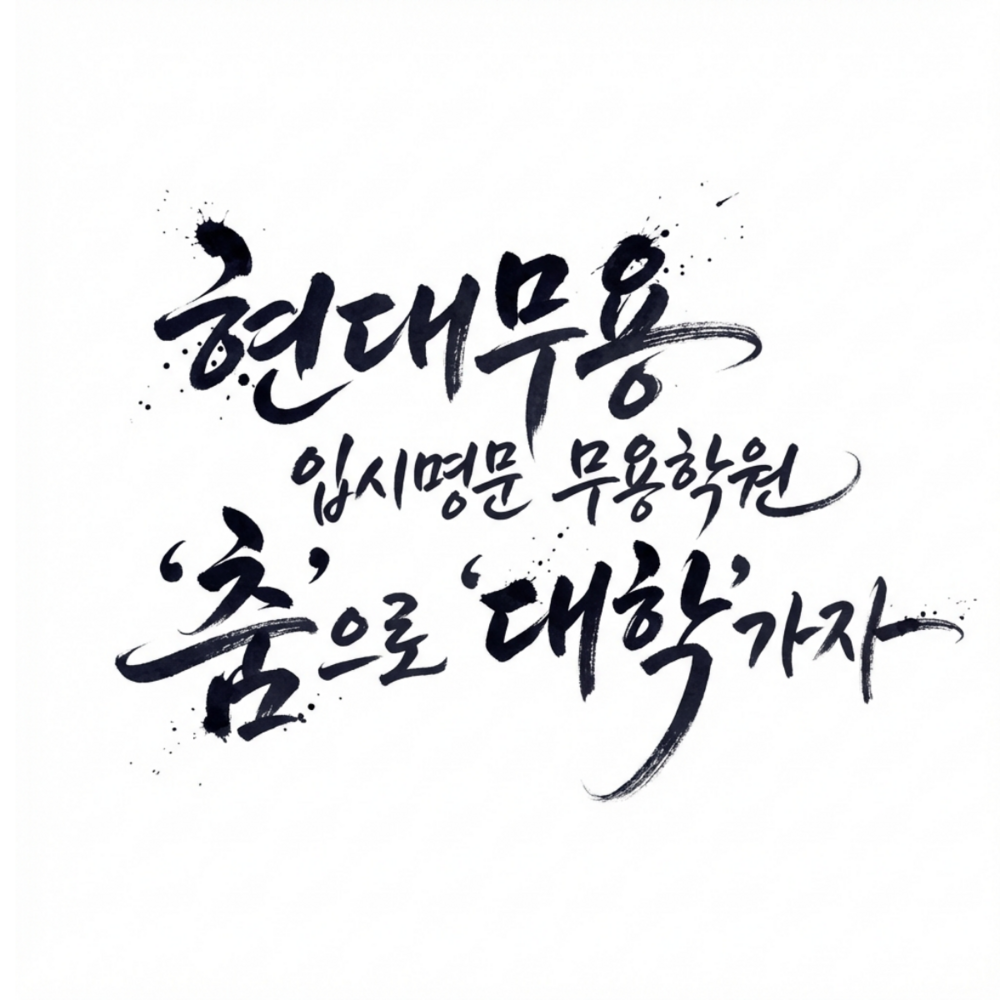 현대무용
입시명문 무용학원
‘춤’으로 ‘대학’가자